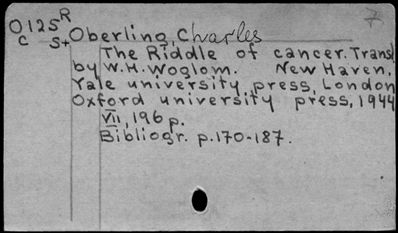 7
O125R
C St Oberling, Charles
The Riddle of cancer. Transl.
by W.H. Woglom. New Haven,
Yale university press, London
Oxford university press, 1944
VII, 196 p.
Bibliogr. p.170-187.